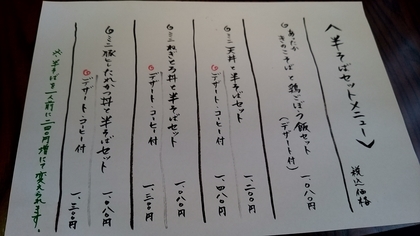 〈半そばセットメニュー〉 税込価格
◎あったか
きのこそばと鶏ごぼう飯セット
(デザート付) 一、〇八〇円
◎ミニ天丼と半そばセット 一、二〇〇円
◎デザート・コーヒー付 一、四八〇円
◎ミニねぎとろ丼と半そばセット 一、〇八〇円
◎デザート・コーヒー付 一、三〇円
◎ミニ豚ヒレたれかつ丼と半そばセット 一、〇八〇円
◎デザート・コーヒー付 一、三〇円
※半そばを一人前に二四〇円増にて変えられます。